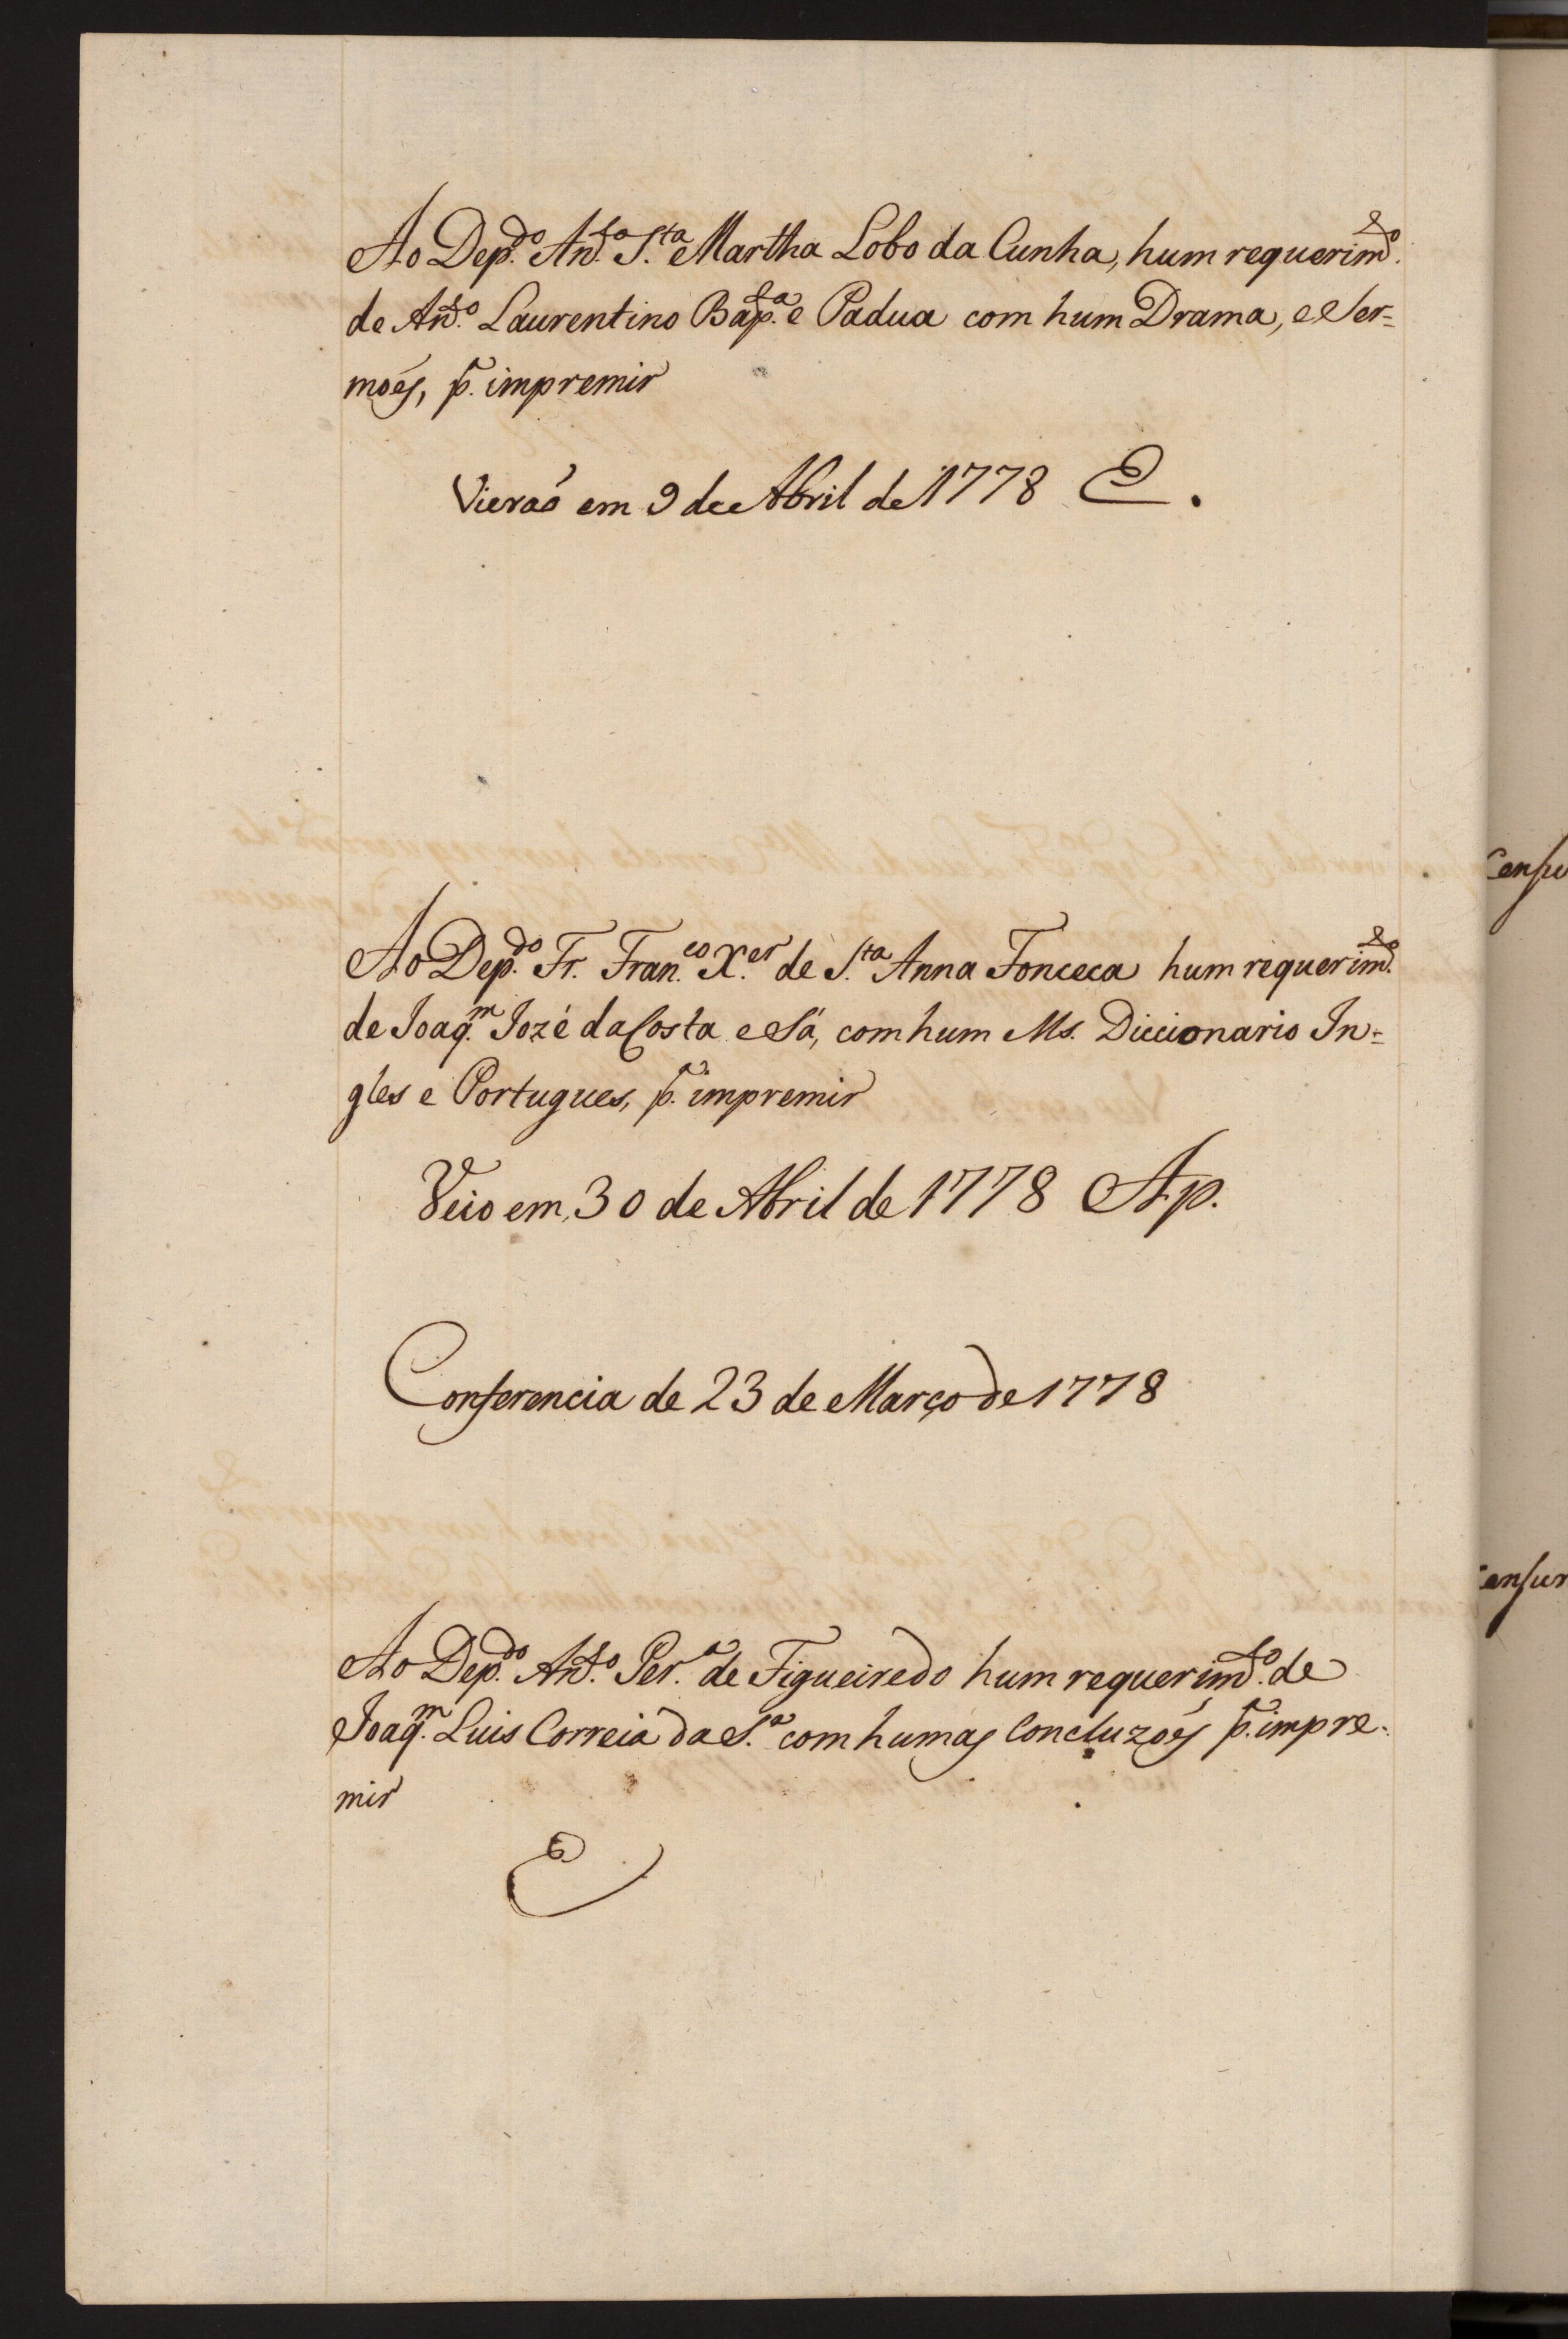 Ao Dep.do Ant.o S.ta Martha Lobo da Cunha, hum requerim.to
de Ant.o Laurentino Bap.ta e Padua com hum Drama, e Ser=
moẽs, p.a impremir
Vieraõ em 9 de Abril de 1778 E.
Ao Dep.do Fr. Fran.co X.er de S.ta Anna Fonceca hum requerim.to
de Joaq.m Jozé da Costa e Sá, com hum Ms. Diccionario In=
gles e Portugues, p.a impremir
Veio em 30 de Abril de 1778 Ap.
Conferencia de 23 de Março de 1778
Ao Dep.do Ant.o Per.a de Figueiredo hum requerim.to de
Joaq.m Luis Correia da S.a com humas Concluzoẽs p.a impre-
mir
E
Censu
ensur